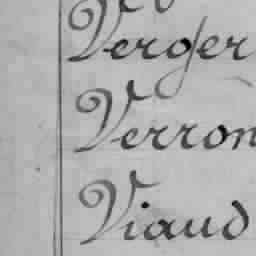 Verger
Verron
Viaud